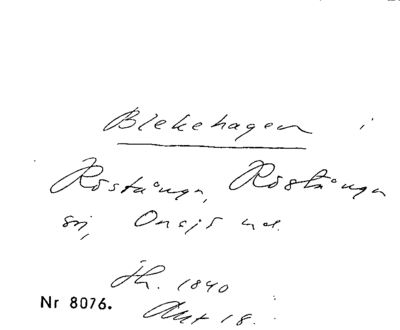 Blekehagen i
Röstånga, Röstånga
sn, Onsjö hd.
Jb. 1840
Nr 8076.
Akt 18.